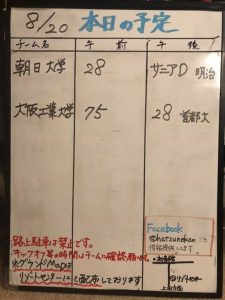 8/20 本日の予定
チーム名 午前 午後
朝日大学 28 サニアD 明治
大阪工業大学 75 28 首都大
Facebook
@hatsunekan
情報提供します
路上駐車は禁止です。
キックオフ等の時間はチームに確認願います。
※グランドMapは
リゾートセンターに
て配布しております